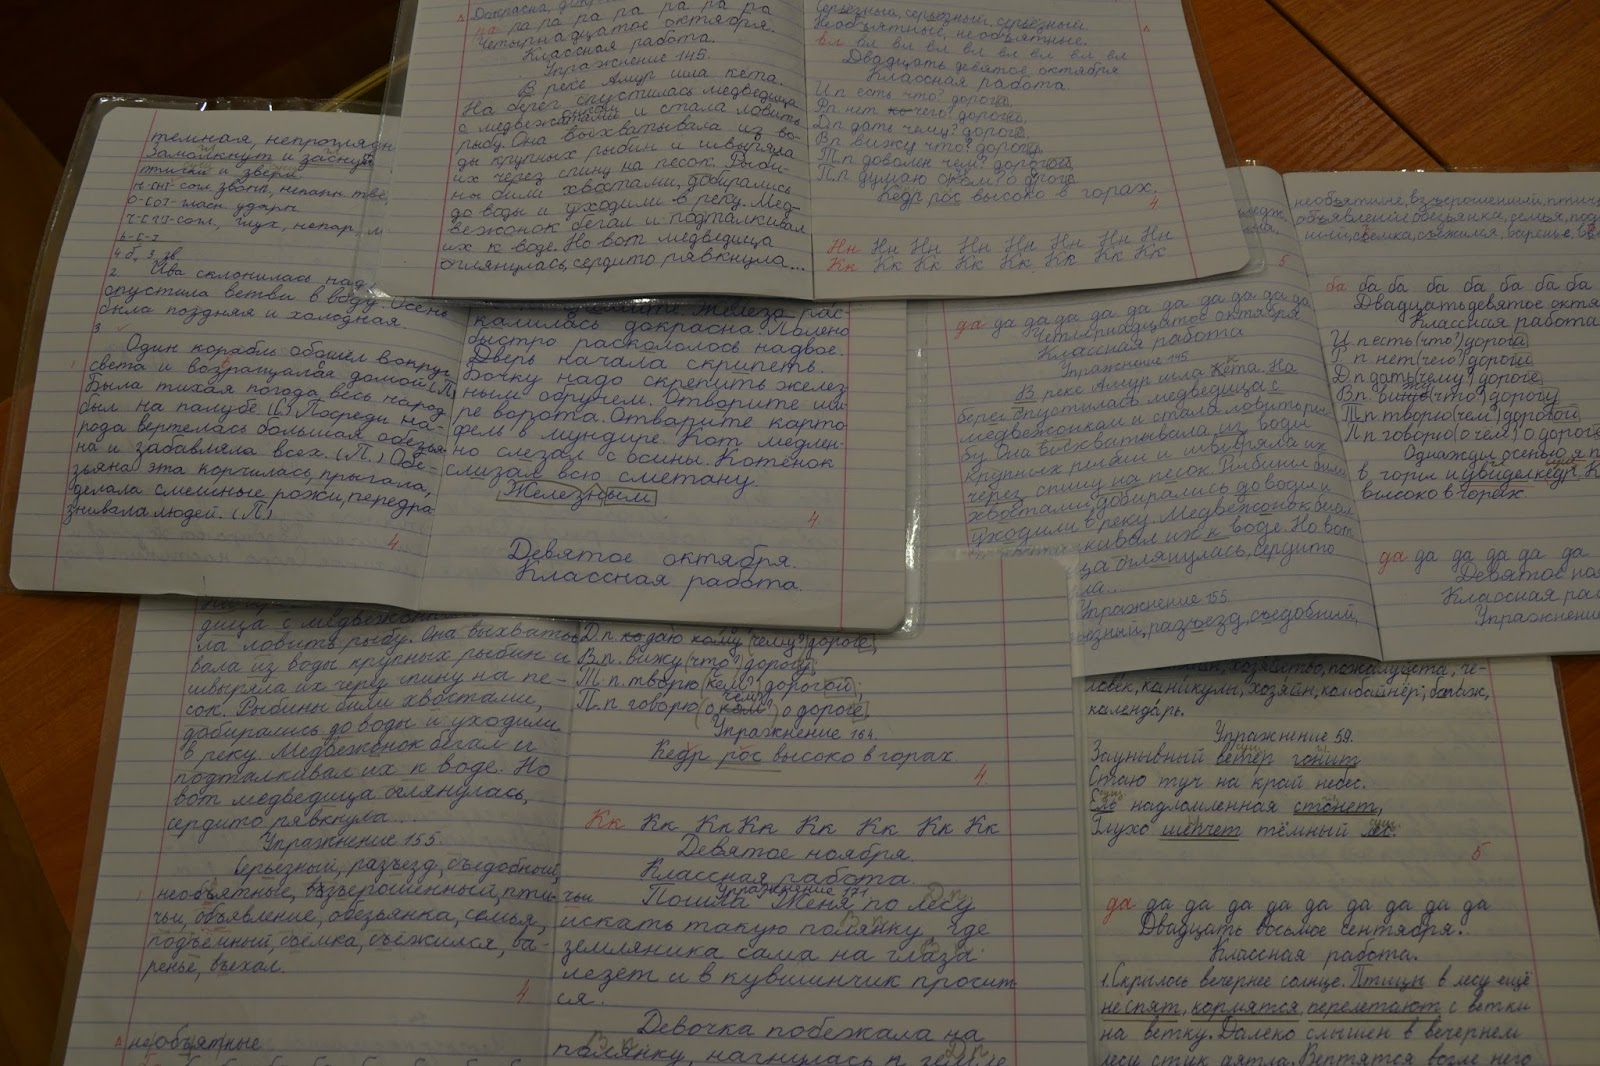 Докрасна,
ра ра ра ра ра ра ра ра
Четырнадцатое октября.
Классная работа.
Упражнение 145.
В реке Амур шла кета.
На берег спустилась медведица
с медвежатами и стала ловить
рыбу. Она выхватывала из во-
ды крупных рыбин и швыряла
их через спину на песок. Рыби-
ны били хвостами, добирались
до воды и уходили в реку. Мед-
вежонок бегал и подталкивал
их к воде. Но вот медведица
оглянулась, сердито рявкнула...
Серьёзный, серьёзный, серьёзный.
Необъятные, необъятные.
вл вл вл вл вл вл вл вл вл
Двадцать девятое октября
Классная работа.
И.п есть что? дорога,
Р.п нет чего? дороги,
Д.п дать чему? дороге,
В.п вижу что? дорогу,
Т.п доволен чем? дорогой,
П.п думаю о чем? о дороге
Кедр рос высоко в горах.
4
Нн Нн Нн Нн Нн Нн Нн Нн
Кк Кк Кк Кк Кк Кк Кк Кк
тёмная, непрогляд
Замолкнут и заснут
птички и звери
4 б, 3 зв
2 Ива склонилась над
опустила ветви в воду. Осень
была поздняя и холодная.
3
Один корабль обошёл вокруг
света и возвращался домой. (П)
Была тихая погода, весь народ
был на палубе. (П.) Посреди на-
рода вертелась большая обезья
на и забавляла всех. (П.) Обе-
зьяна эта корчилась, прыгала,
делала смешные рожи, передра
знивала людей. (П)
4
Железо рас-
калилась докрасна. Полено
быстро раскололось надвое.
Дверь начала скрипеть.
Бочку надо скрепить желез
ным обручем. Отворите ши-
ре ворота. Отварите карто
фель в мундире. Кот медлен-
но слезал с осины. Котёнок
слизал всю сметану.
Железным
4
Девятое октября.
Классная работа.
да да да да да да да да да
Четырнадцатое октября
Классная работа
Упражнение 145
В реке Амур шла кета. На
берег спустилась медведица с
медвежонком и стала ловить ры
бу. Она выхватывала из воды
крупных рыбин и швыряла их
через спину на песок. Рыбины били
хвостами, добирались до воды и
уходили в реку. Медвежонок бегал
кивал их к воде. Но вот
ца оглянулась, сердито
ла...
Упражнение 155.
ёзный, разъезд, съедобный,
необъятные, взъерошенный, птичь
объявление, обезьянка, семья, под
ный, съёмка, съёжился, варенье, въ
5
ба ба ба ба ба ба ба ба
Двадцать девятое октя
Классная работа
И.п есть (что?) дорога
Р.п нет (чего?) дороги
Д.п дать (чему?) дороге,
В.п. вижу (что?) дорогу
Т.п творю (чем?) дорогой
П.п говорю (о чём?) о дороге
Однажды осенью я п
в горы и увидел кедр. К
высоко в горах.
да да да да да да
Девятое ноя
Классная раб
Упражнение
дица с медвежонком
ла ловить рыбу. Она выхваты
вала из воды крупных рыбин и
швыряла их через спину на пе-
сок. Рыбины били хвостами,
добирались до воды и уходили
в реку. Медвежонок бегал и
подталкивал их к воде. Но
вот медведица оглянулась,
сердито рявкнула...
Упражнение 155.
Серьёзный, разъезд, съедобный,
необъятные, взъерошенный, пти-
чьи, объявление, обезьянка, семья,
подъёмный, съёмка, съёжился, ва-
ренье, въехал.
4
необъятные
Д.п. подаю кому (чему?) дороге,
В.п. вижу (что?) дорогу
Т.п. творю (кем?) дорогой,
чём?
П.п говорю (о кём?) о дороге,
Упражнение 164.
Кедр рос высоко в горах.
4.
Кк Кк Кк Кк Кк Кк Кк Кк
Девятое ноября.
Классная работа.
Упражнение 171
чьи Пошла Женя по лесу
искать такую полянку, где
земляника сама на глаза
лезет и в кувшинчик просит
ся.
Девочка побежала на
полянку, нагнулась к земле
хозяйство, пожалуйста, че-
ловек, каникулы, хозяин, комбайнёр,
календарь.
Упражнение 59.
Заунывный ветер гонит
Стаю туч на край небес.
Ель надломленная стонет,
Глухо шепчет тёмный лес.
5
да да да да да да да да да да
Двадцать восьмое сентября.
Классная работа.
1. Скрылось вечернее солнце. Птицы в лесу ещё
не спят, кормятся перелетают с ветки
на ветку. Далеко слышен в вечернем
лесу стук дятла. Вертятся возле него